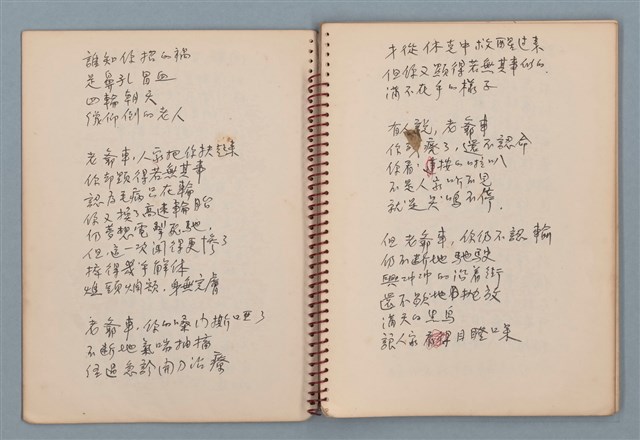 誰知你招的禍
是鼻孔冒血
四輪朝天
像仰倒的老人
老爺車,人家把你扶起來
你卻顯得若無其事
認為毛病只在輪
你又換了高速輪胎
仍夢想電掣風馳
但這一次鬧得更慘了
摔得幾乎解體
焦頭爛額,身無完膚
老爺車,你的嗓門撕啞了
不斷地氣喘抽痛
經過急診開刀治療
才從休克中救醒過來
但你又顯得若無其事似的
滿不在乎的樣子
有人說,老爺車
你 瘋了,還不認命
你看,連按的喇叭
不是人家听不見
就是哭鳴不停
但老爺車,你仍不認輸
仍不斷地馳駛
興沖沖的沿着街
還不斷地拋放
滿天的黑烏
讓人家看得目瞪口呆